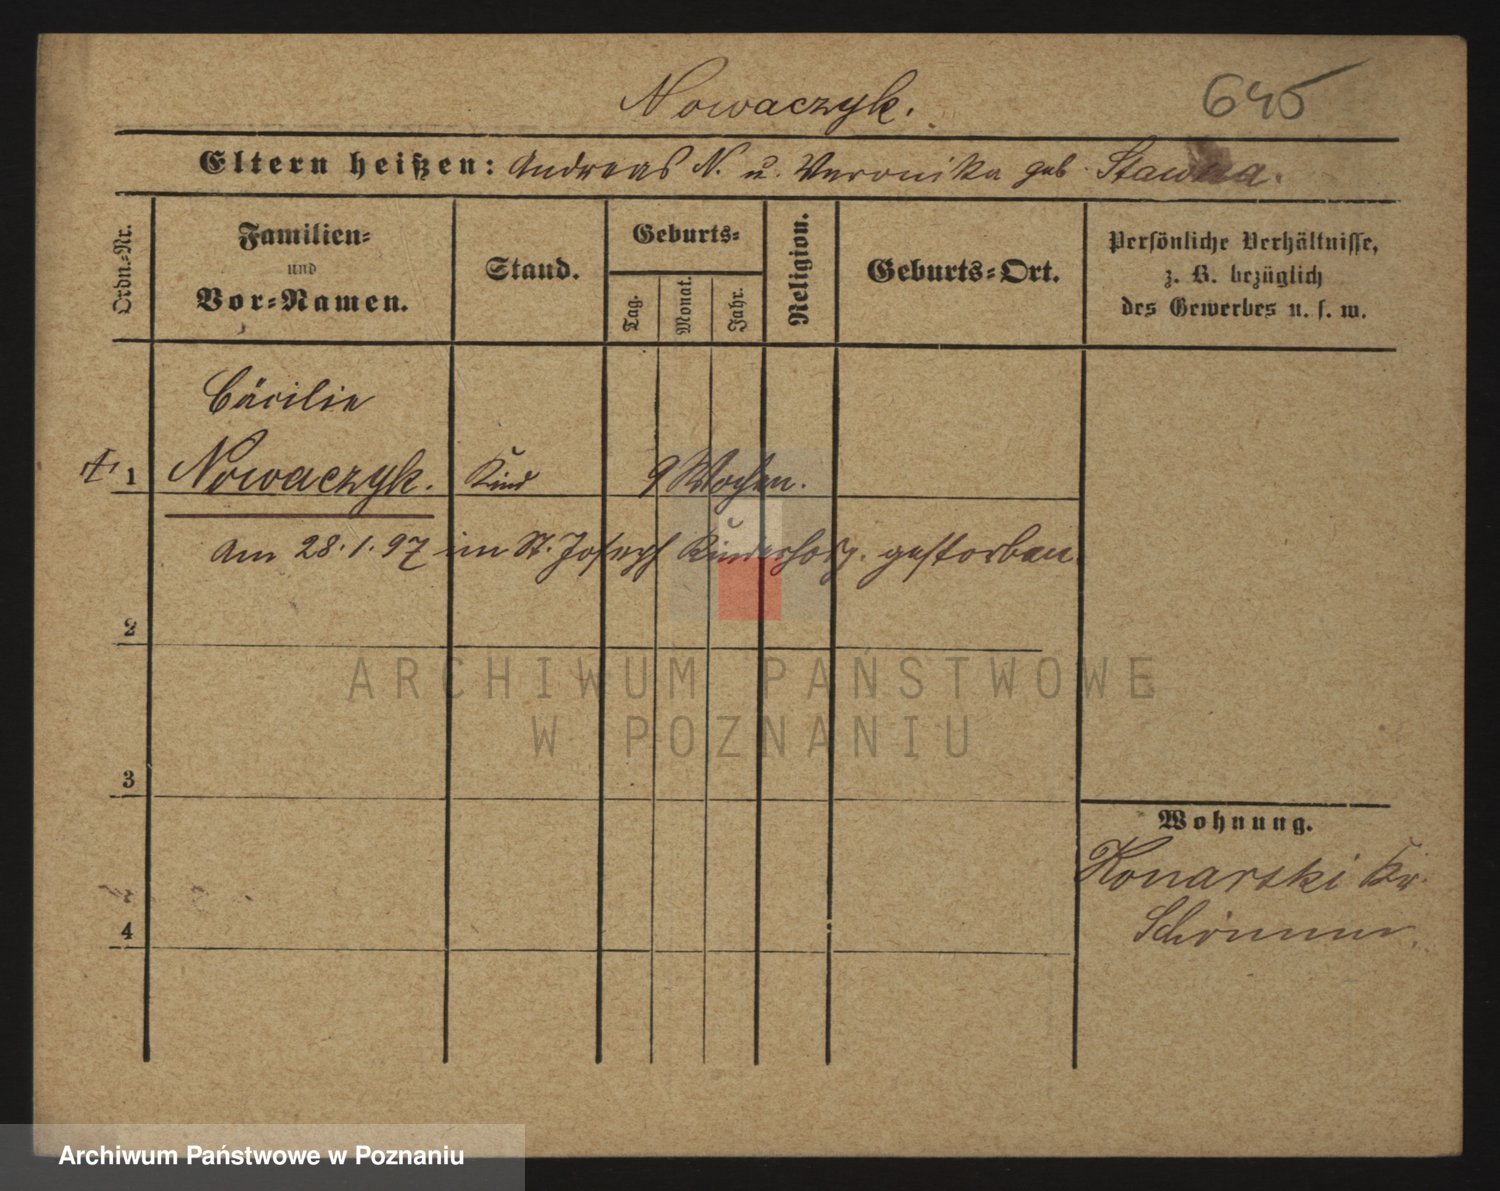 Nowaczyk.
645
Eltern heißen: Andreas N. u. Veronika geb.
Ordn.-Nr.
Familien-
und
Vor-Namen.
Stand.
Geburts-
Tag.
Monat.
Jahr.
Religion.
Geburts-Ort.
Persönliche Verhältnisse,
z. B. bezüglich
des Gewerbes u. s. w.
Cäcilie
1 Nowaczyk. Kind 9 Wochen.
am 28.1.97 im St. Joseph Kinderhosp. gestorben.
2
3
4
Wohnung.
Konarski Kr.
ARCHIWUM PAŃSTWOWE
W POZNANIU
Archiwum Państwowe w Poznaniu